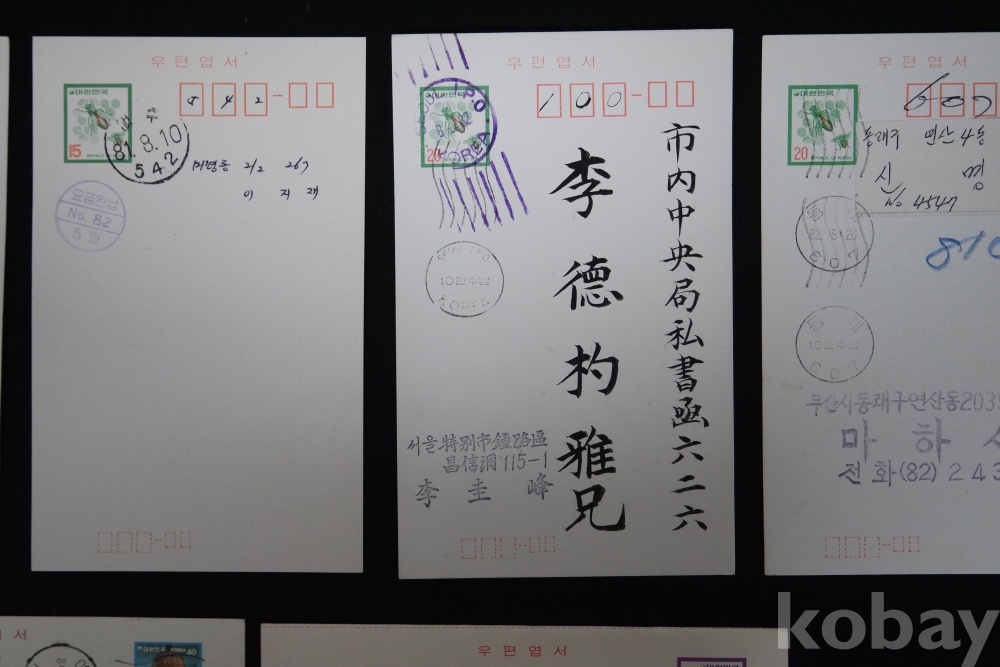 우편엽서
대한민국
15
81.8.10
542
542-
미평동 2/2 267
이지재
요금완납
No. 82
5원
우편엽서
20
P.O
KOREA
100-
市内中央局私書函六二六
李德杓雅兄
10원수납
KOREA
서울特別市鍾路區
昌信洞 115-1
李圭峰
우편엽서
대한민국
20
607
동래구 연산4동
신 명
No 4547
607
810
607
부산시동래구연산동203
마하
전화(82)243
우편엽서
대한민국 KOREA 40
우편엽서
kobay